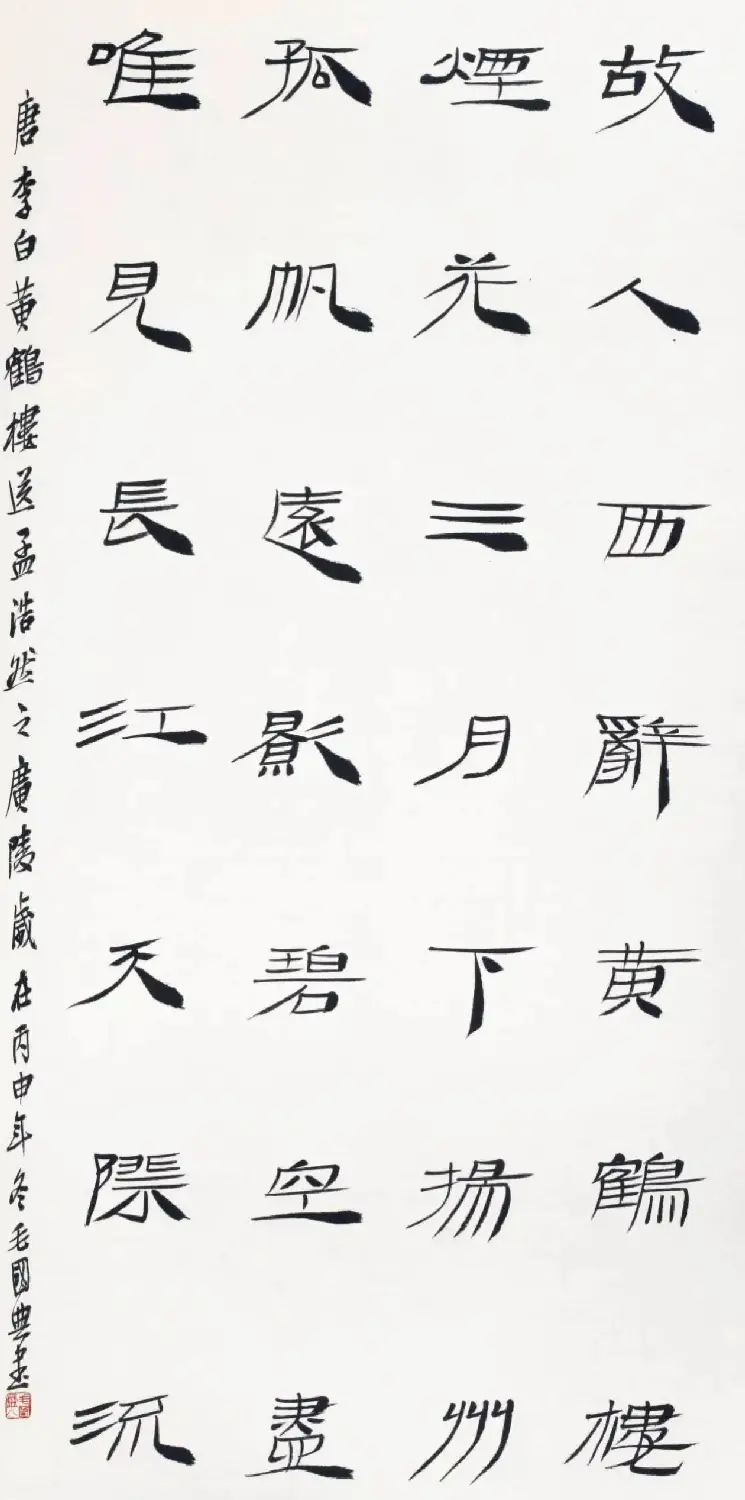 故人西辭黃鶴樓
煙花三月下揚州
孤帆遠影碧空盡
唯見長江天際流
唐李白黃鶴樓送孟浩然之廣陵歲在丙申年冬毛國典書